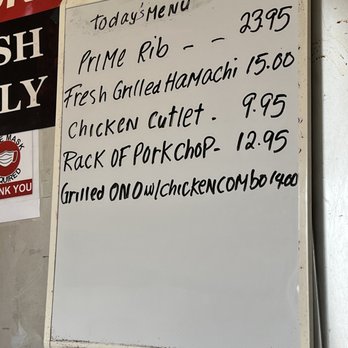 Today's MENU
PRIME Rib - - 23.95
Fresh Grilled Hamachi 15.00
CHICKEN Cutlet - 9.95
RACK OF PORKCHOP - 12.95
Grilled ONO w/CHICKEN COMBO 14.00
SH
LY
MASK
NK YOU